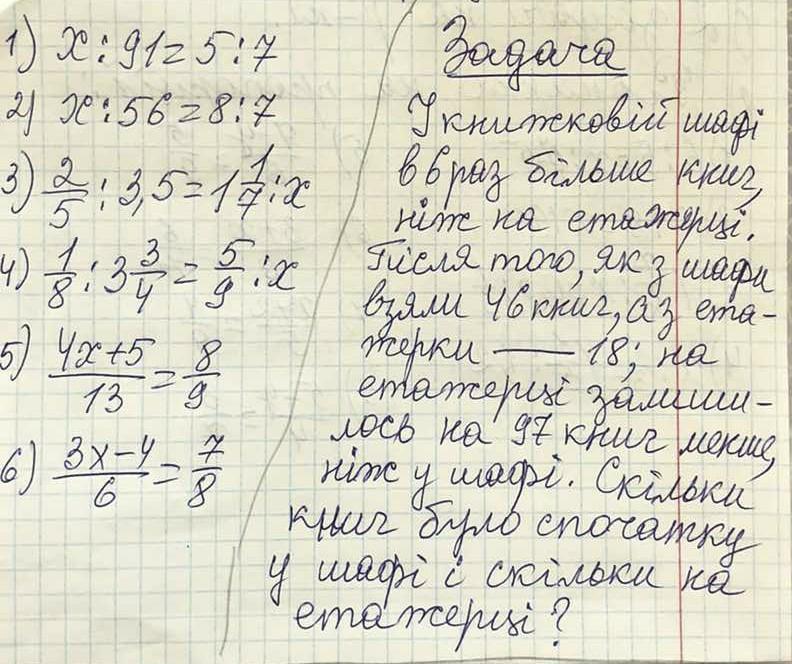 1) x : 91 = 5 : 7
2) x : 56 = 8 : 7
3) 2/5 : 3,5 = 1 1/7 : x
4) 1/8 : 3 3/4 = 5/9 : x
5) (4x+5)/13 = 8/9
6) (3x-4)/6 = 7/8
Задача
У книжковій шафі
в 6 раз більше книг,
ніж на етажерці.
Після того, як з шафи
взяли 46 книг, а з ета-
жерки — 18; на
етажерці залиши-
лось на 97 книг менше,
ніж у шафі. Скільки
книг було спочатку
у шафі і скільки на
етажерці?